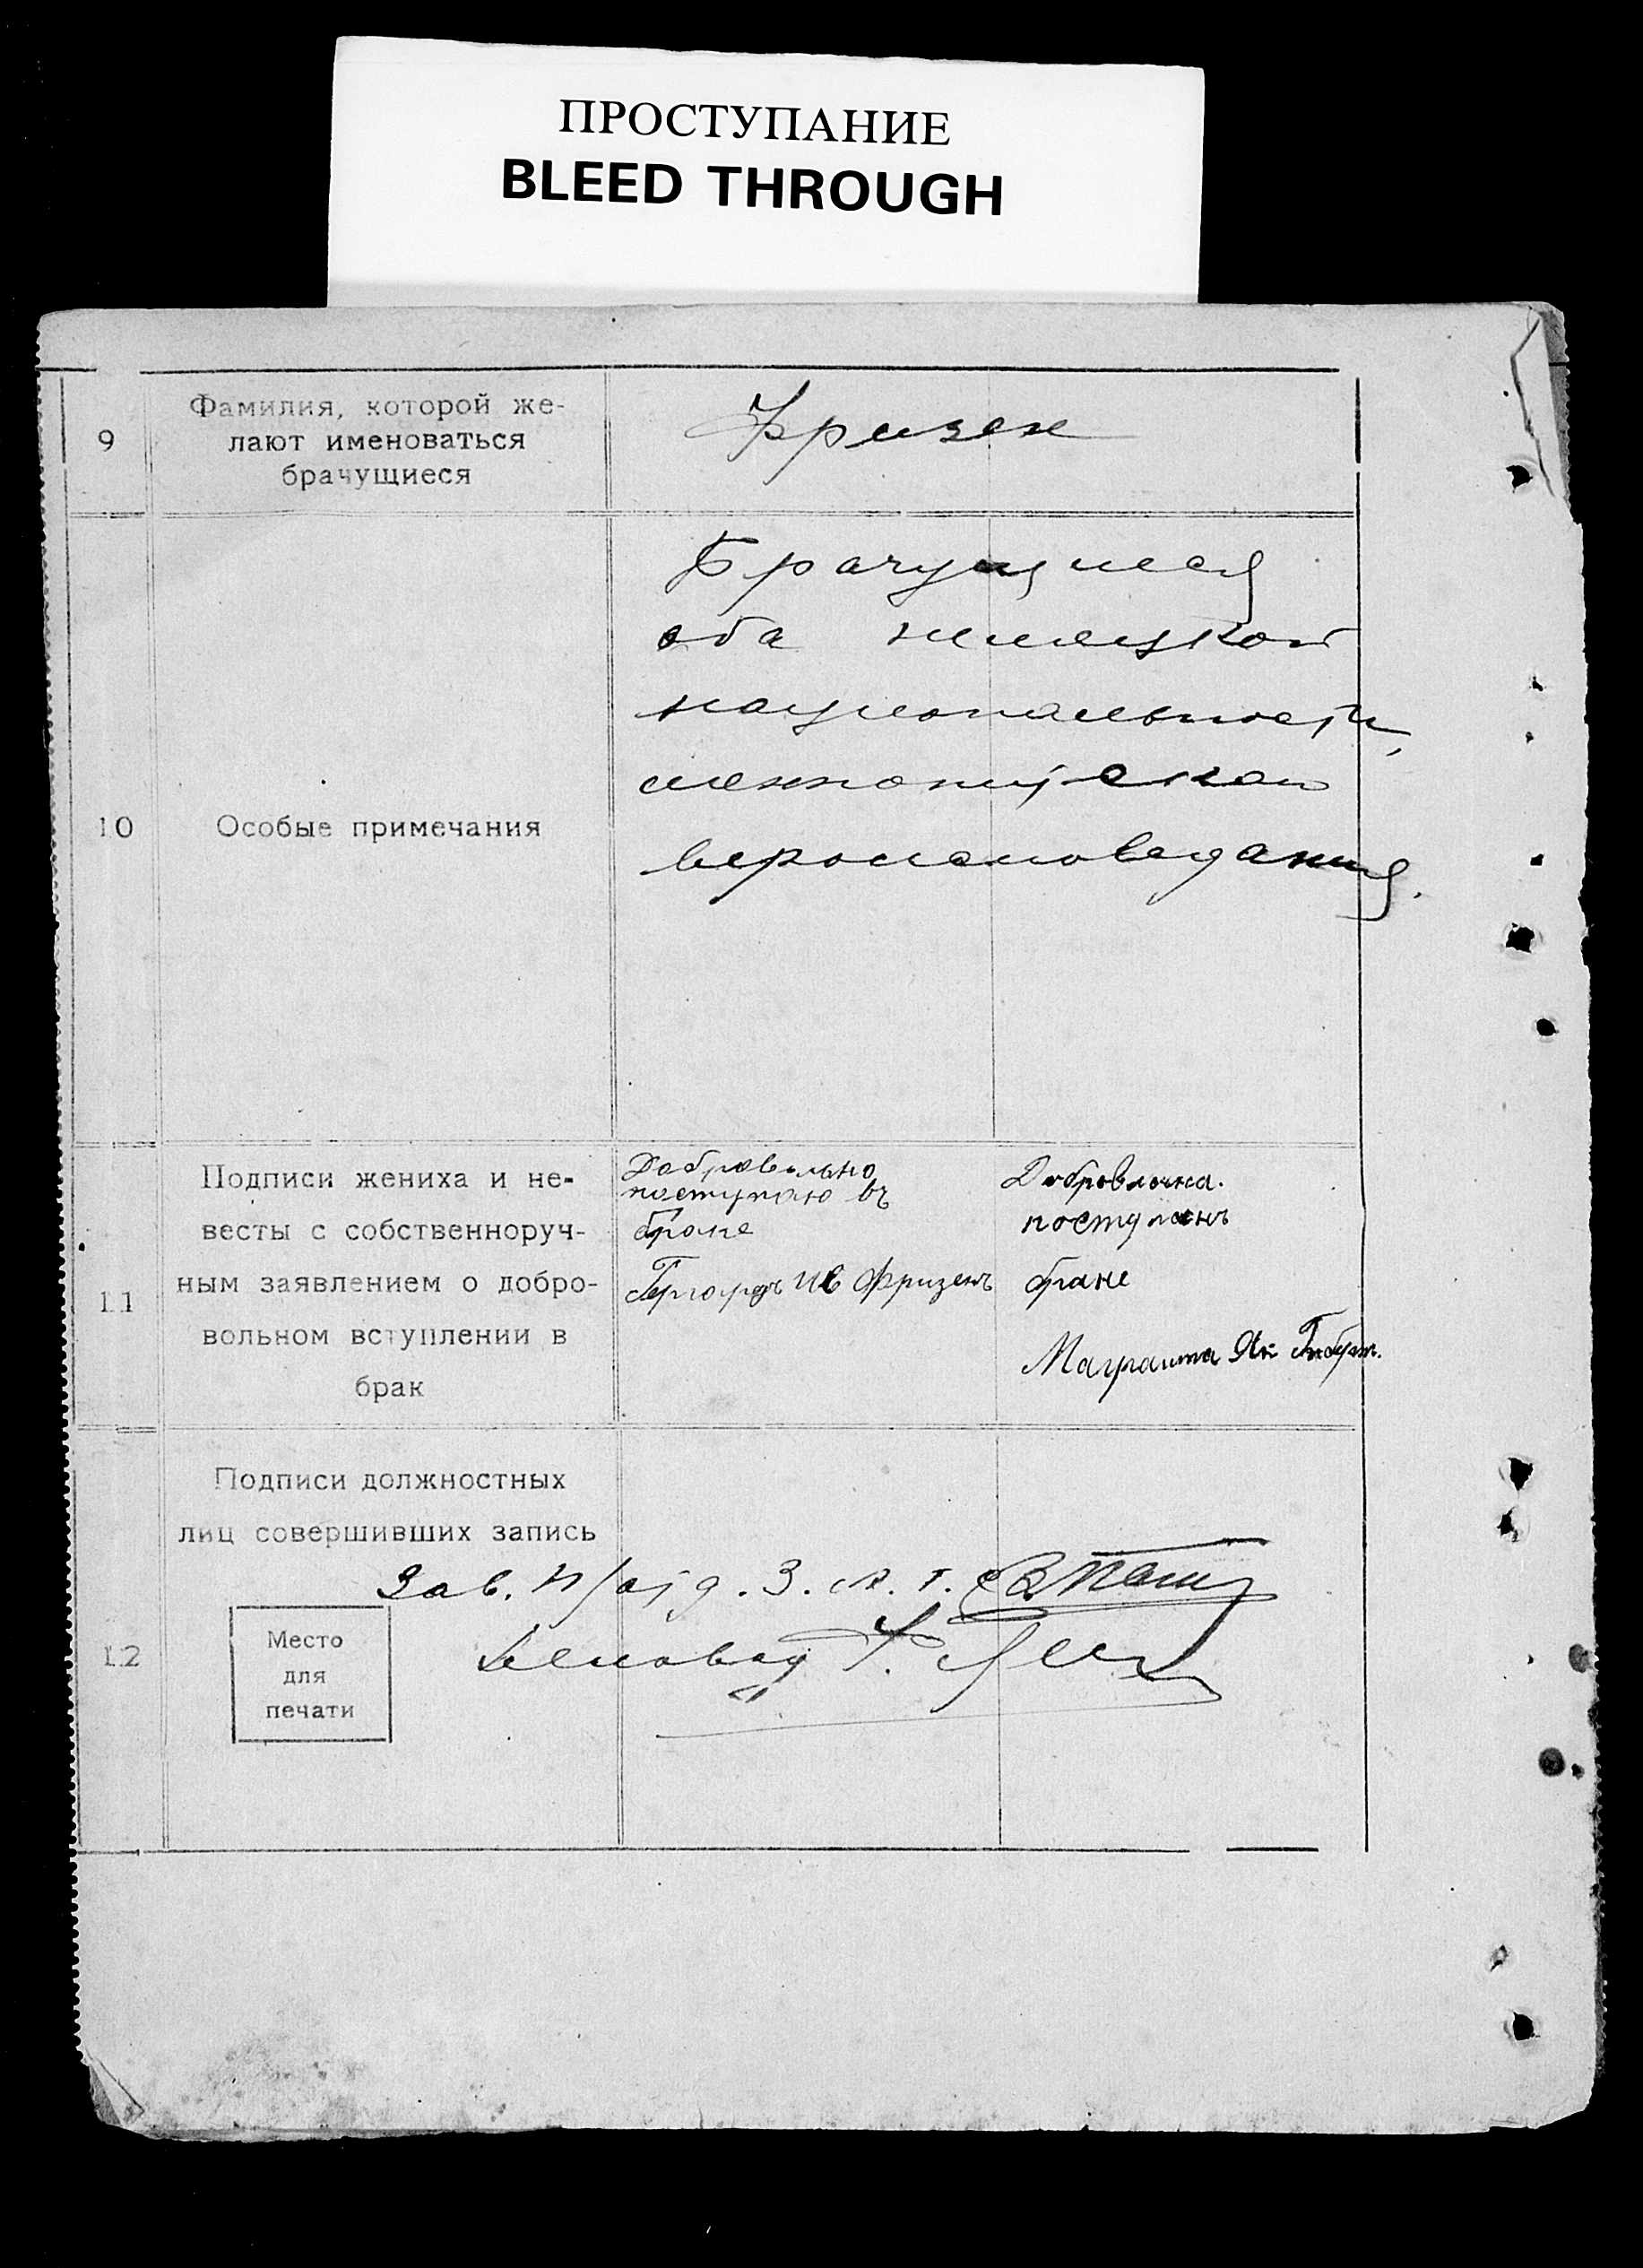 ПРОСТУПАНИЕ
BLEED THROUGH
9
Фамилия, которой же-
лают именоваться
брачущиеся
Фризен
10
Особые примечания
Брачущиеся
оба немецкой
национальности,
меннонитской
вероисповедания.
11
Подписи жениха и не-
весты с собственноруч-
ным заявлением о добро-
вольном вступлении в
брак
Добровольно
поступаю въ
браке
Гергардъ Ив Фризенъ
поступаю
браке
Як
12
Подписи должностных
лиц совершивших запись
Зав. П/отд. З.А.Г.С.
Место
для
печати
Делоквод